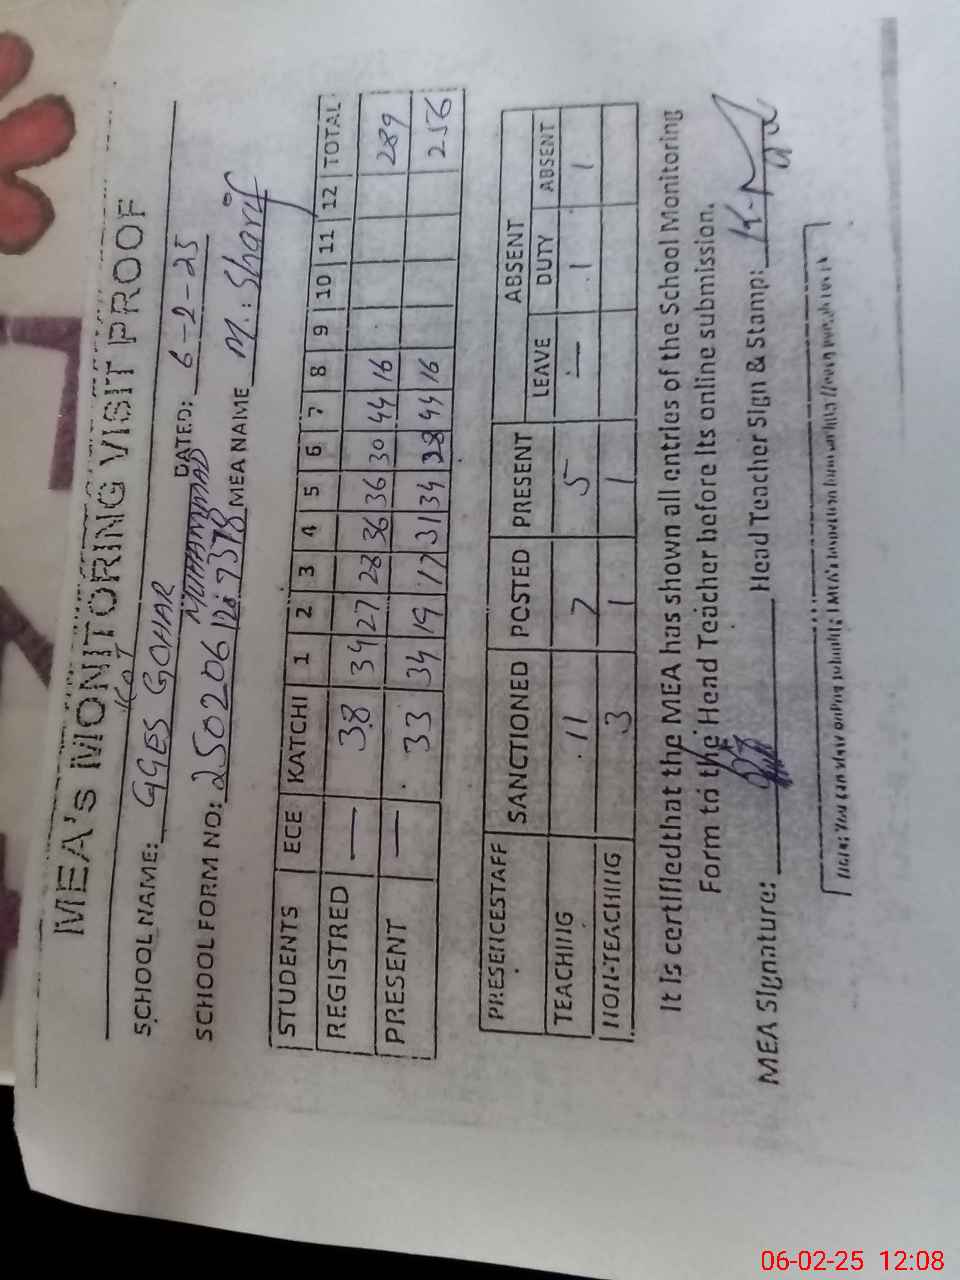 MEA's MONITORING VISIT PROOF
SCHOOL NAME: GGES GOHAR DATED: 6-2-25
KOT MUHAMMAD
SCHOOL FORM NO: 250206 MEA NAME M. Sharif
STUDENTS ECE KATCHI 1 2 3 4 5 6 7 8 9 10 11 12 TOTAL
REGISTRED — 38 34 27 28 36 36 30 44 16 289
PRESENT — 33 34 19 17 31 34 28 44 16 256
PRESENCESTAFF SANCTIONED POSTED PRESENT ABSENT
LEAVE DUTY ABSENT
TEACHING 11 7 5 — 1 1
NON-TEACHING 3 1 1
It is certifiedthat the MEA has shown all entries of the School Monitoring
Form to the Head Teacher before its online submission.
MEA Signature: Head Teacher Sign & Stamp:
You can view
06-02-25 12:08